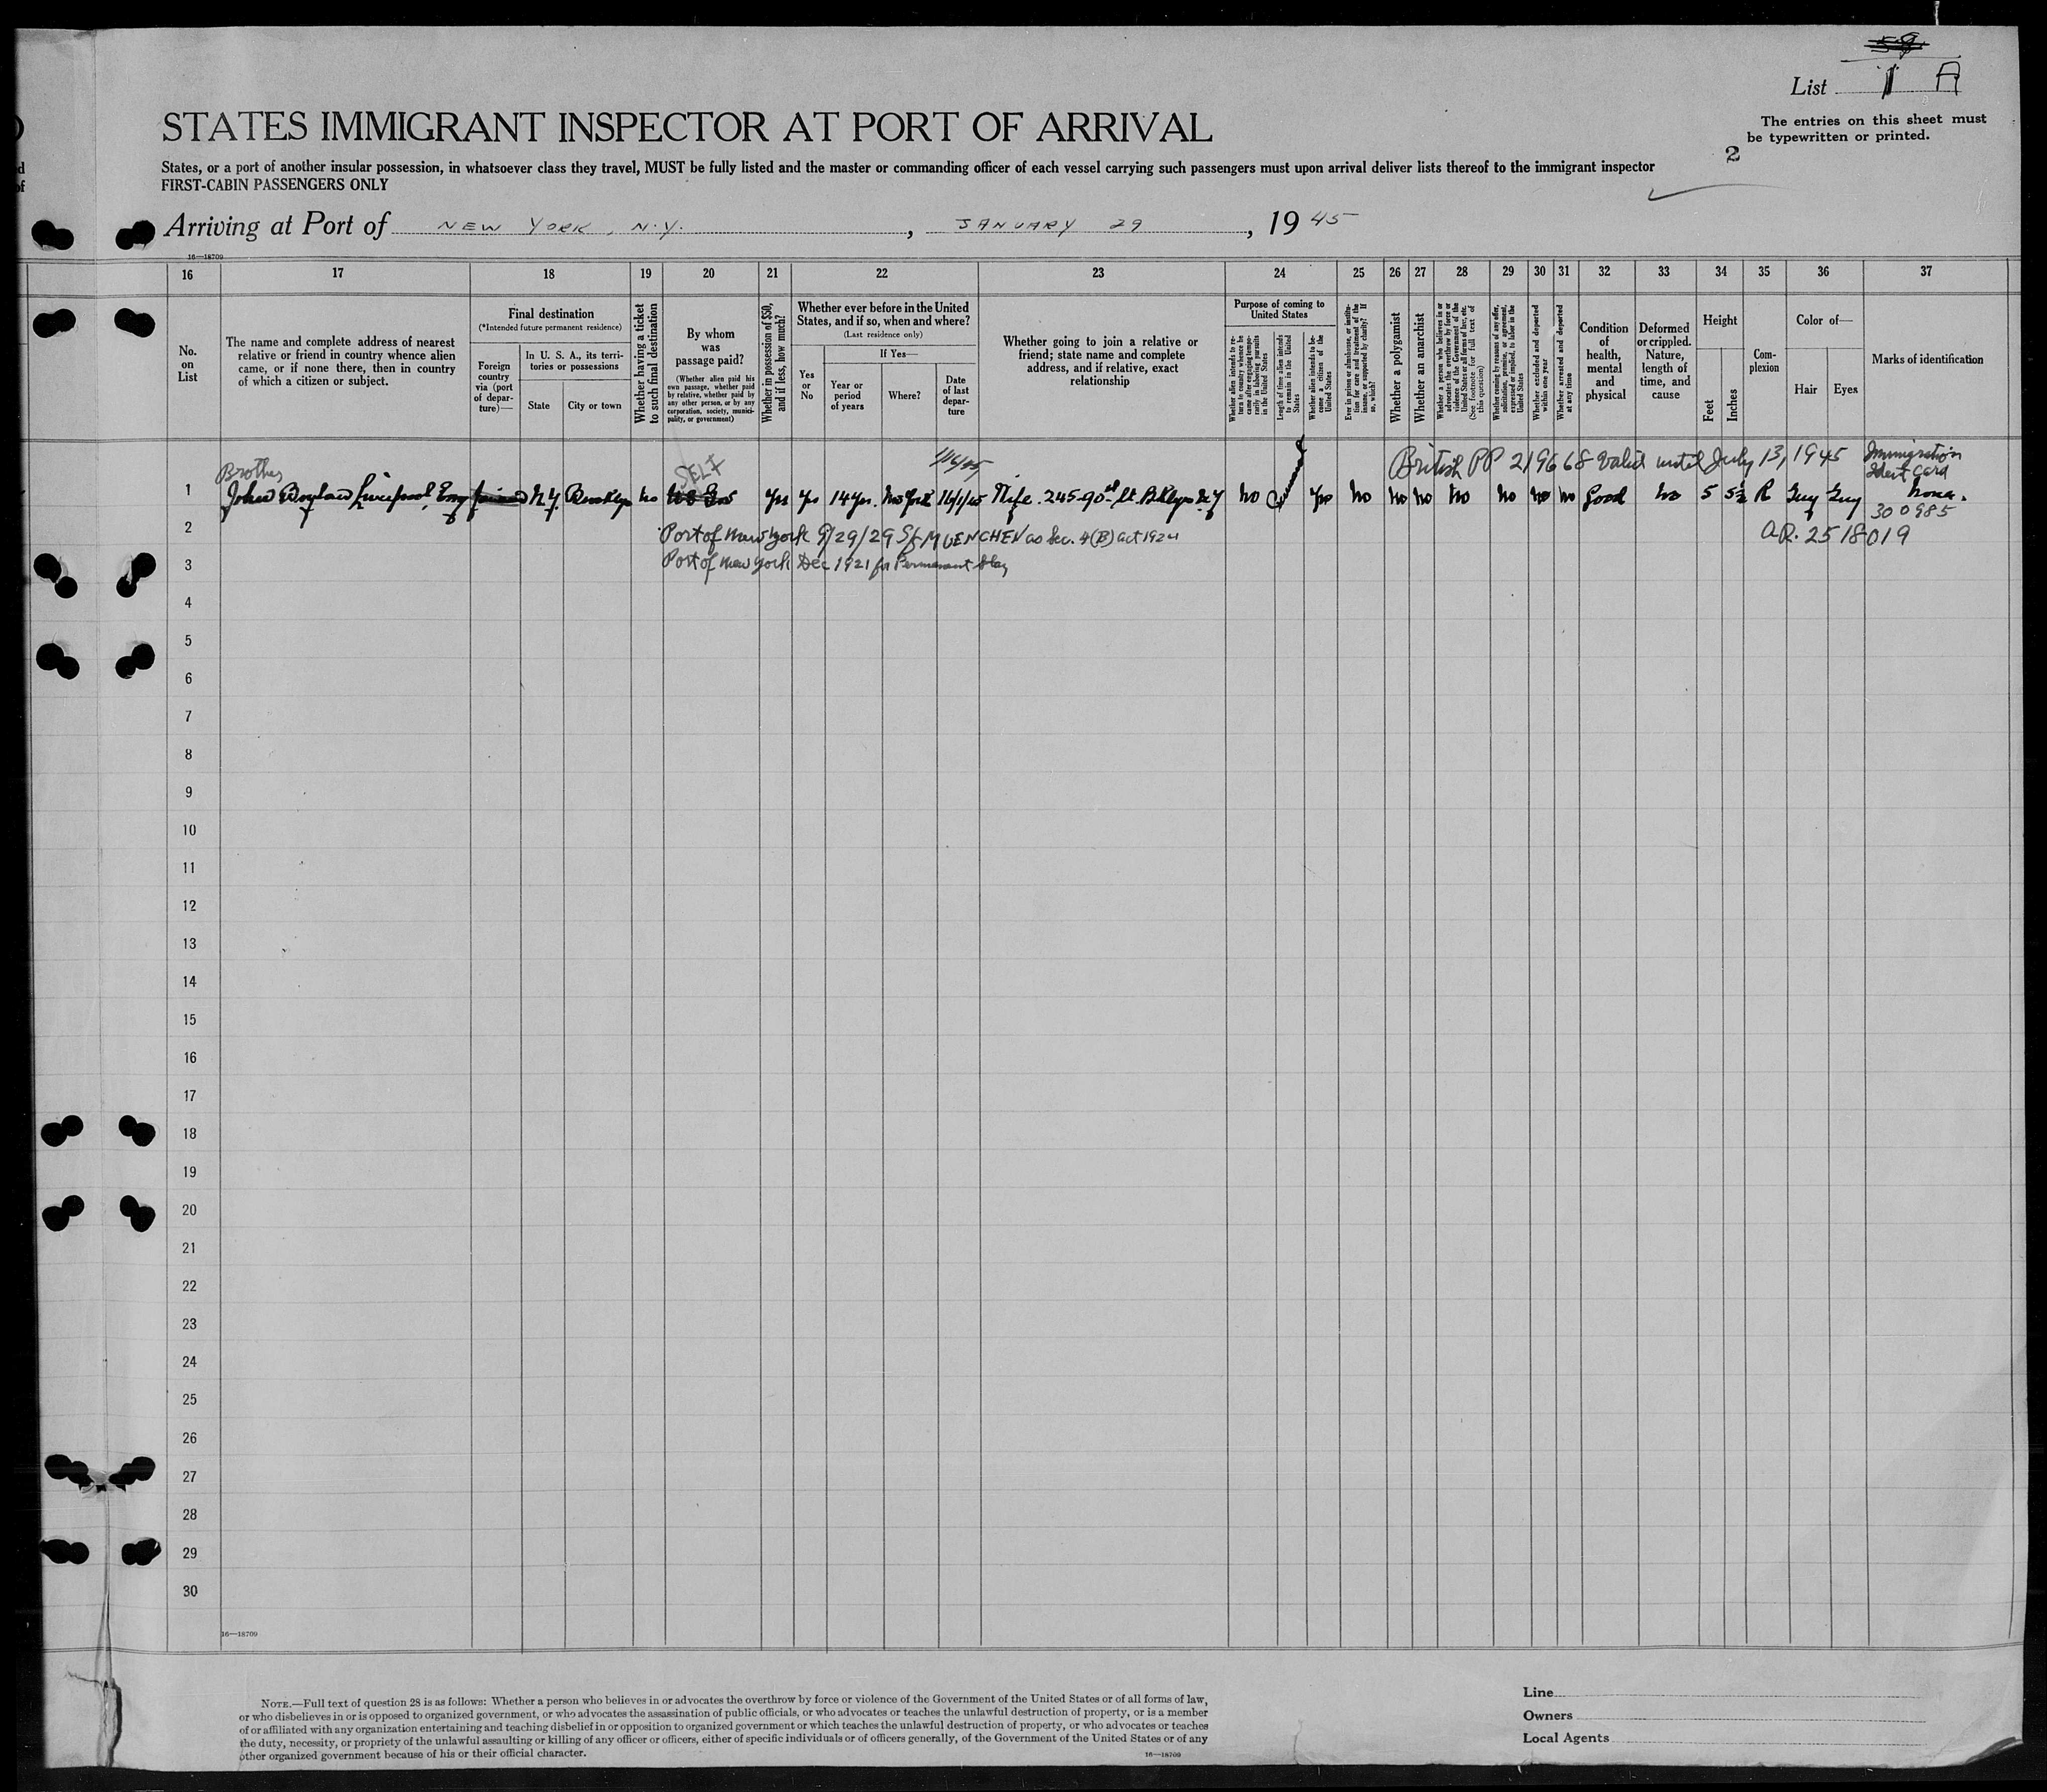 58
List 1 A
The entries on this sheet must
be typewritten or printed.
2
STATES IMMIGRANT INSPECTOR AT PORT OF ARRIVAL
States, or a port of another insular possession, in whatsoever class they travel, MUST be fully listed and the master or commanding officer of each vessel carrying such passengers must upon arrival deliver lists thereof to the immigrant inspector
FIRST-CABIN PASSENGERS ONLY
Arriving at Port of NEW YORK, N.Y., JANUARY 29, 1945
16—18709
16 17 18 19 20 21 22 23 24 25 26 27 28 29 30 31 32 33 34 35 36 37
No.
on
List
The name and complete address of nearest
relative or friend in country whence alien
came, or if none there, then in country
of which a citizen or subject.
Final destination
(*Intended future permanent residence)
Foreign
country
via (port
of depar-
ture)—
In U. S. A., its terri-
tories or possessions
State
City or town
Whether having a ticket
to such final destination
By whom
was
passage paid?
(Whether alien paid his
own passage, whether paid
by relative, whether paid by
any other person, or by any
corporation, society, munici-
pality, or government)
Whether in possession of $50,
and if less, how much?
Whether ever before in the United
States, and if so, when and where?
(Last residence only)
Yes
or
No
If Yes—
Year or
period
of years
Where?
Date
of last
depar-
ture
Whether going to join a relative or
friend; state name and complete
address, and if relative, exact
relationship
Purpose of coming to
United States
Whether alien intends to re-
turn to country whence he
came after engaging tempo-
rarily in laboring pursuits
in the United States
Length of time alien intends
to remain in the United
States
Whether alien intends to be-
come a citizen of the
United States
Ever in prison or almshouse, or institu-
tion for care and treatment of the
insane, or supported by charity? If
so, which?
Whether a polygamist
Whether an anarchist
Whether a person who believes in or
advocates the overthrow by force or
violence of the Government of the
United States or all forms of law, etc.
(See footnote for full text of
this question)
Whether coming by reasons of any offer,
solicitation, promise, or agreement,
expressed or implied, to labor in the
United States
Whether excluded and deported
within one year
Whether arrested and deported
at any time
Condition
of
health,
mental
and
physical
Deformed
or crippled.
Nature,
length of
time, and
cause
Height
Feet
Inches
Com-
plexion
Color of—
Hair
Eyes
Marks of identification
Brother SELF 1/16/45 British PP 219668 Valid until July 13, 1945 Immigration
Ident Card
1 John Boylan Liverpool, Eng N.Y. Brooklyn No U.S. Gov Yes Yes 14 yrs. New York 16/1/45 Wife. 245-90th St. Bklyn N.Y No Yes No No No No No No No Good No 5 5½ R Grey Grey None.
300985
2 Port of New York 9/29/29 SS MUENCHEN as Sec. 4(B) act 1924 A.R. 2518019
3 Port of New York Dec 1921 for Permanent Stay
4
5
6
7
8
9
10
11
12
13
14
15
16
17
18
19
20
21
22
23
24
25
26
27
28
29
30
16—18709
NOTE.—Full text of question 28 is as follows: Whether a person who believes in or advocates the overthrow by force or violence of the Government of the United States or of all forms of law,
or who disbelieves in or is opposed to organized government, or who advocates the assassination of public officials, or who advocates or teaches the unlawful destruction of property, or is a member
of or affiliated with any organization entertaining and teaching disbelief in or opposition to organized government or which teaches the unlawful destruction of property, or who advocates or teaches
the duty, necessity, or propriety of the unlawful assaulting or killing of any officer or officers, either of specific individuals or of officers generally, of the Government of the United States or of any
other organized government because of his or their official character.
16—18709
Line
Owners
Local Agents